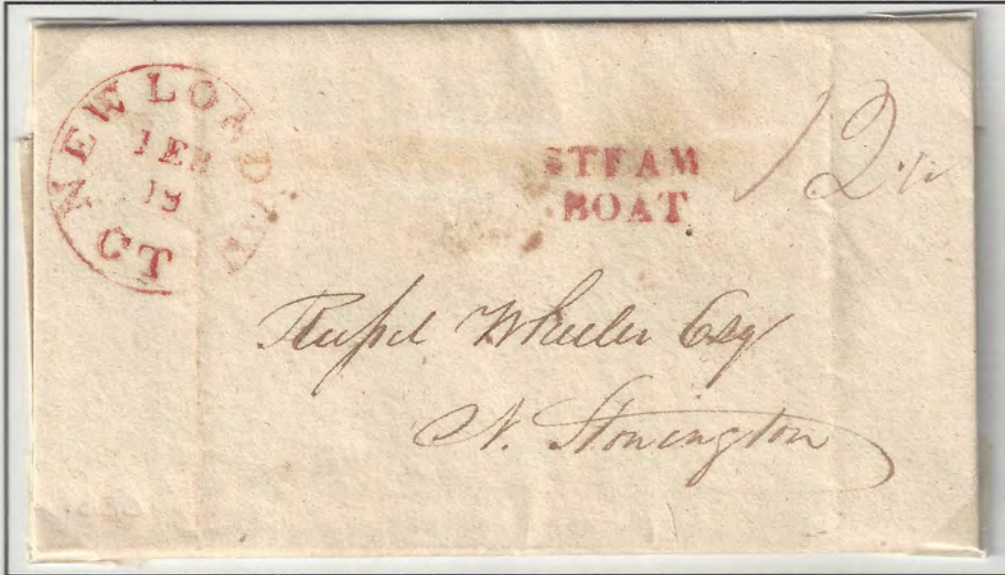 NEW LONDON
FEB
19
CT
STEAM
BOAT
12 1/2
Russel Wheeler Esq
N. Stonington